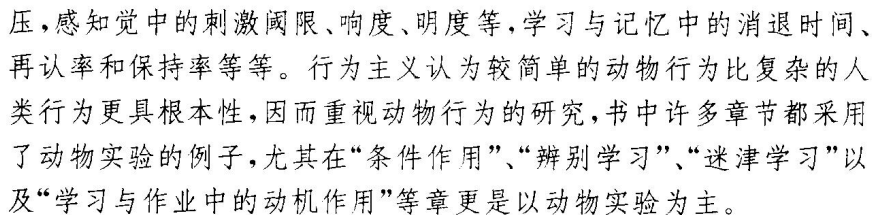 压,感知觉中的刺激阈限、响度、明度等,学习与记忆中的消退时间、
再认率和保持率等等。行为主义认为较简单的动物行为比复杂的人
类行为更具根本性,因而重视动物行为的研究,书中许多章节都采用
了动物实验的例子,尤其在“条件作用”、“辨别学习”、“迷津学习”以
及“学习与作业中的动机作用”等章更是以动物实验为主。